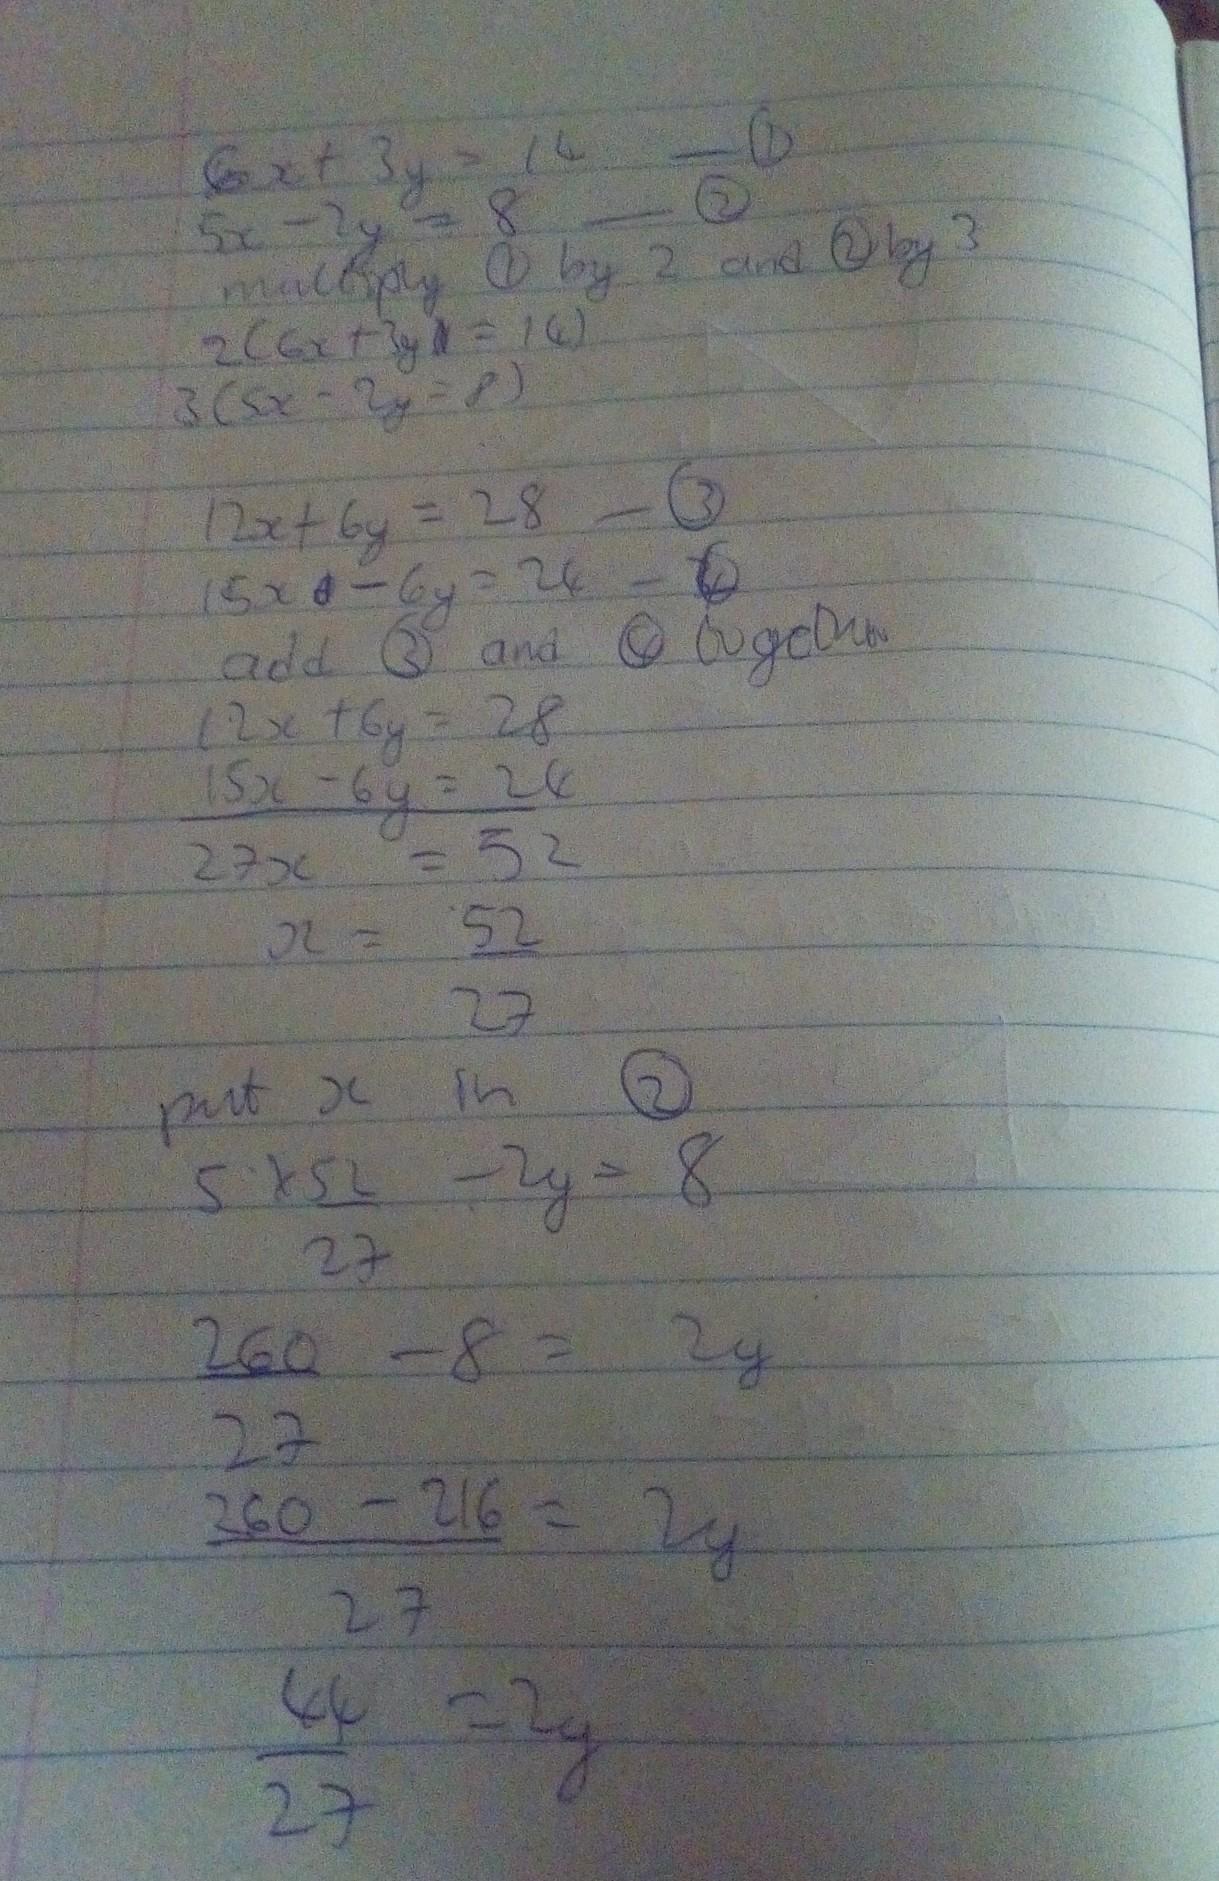 6x + 3y = 14 — ①
5x - 2y = 8 — ②
multiply ① by 2 and ② by 3
2(6x + 3y = 14)
3(5x - 2y = 8)
12x + 6y = 28 — ③
15x - 6y = 24 — ④
add ③ and ④ together
12x + 6y = 28
15x - 6y = 24
27x = 52
x = 52
27
put x in ②
5 x 52 - 2y = 8
27
260 - 8 = 2y
27
260 - 216 = 2y
27
44 = 2y
27